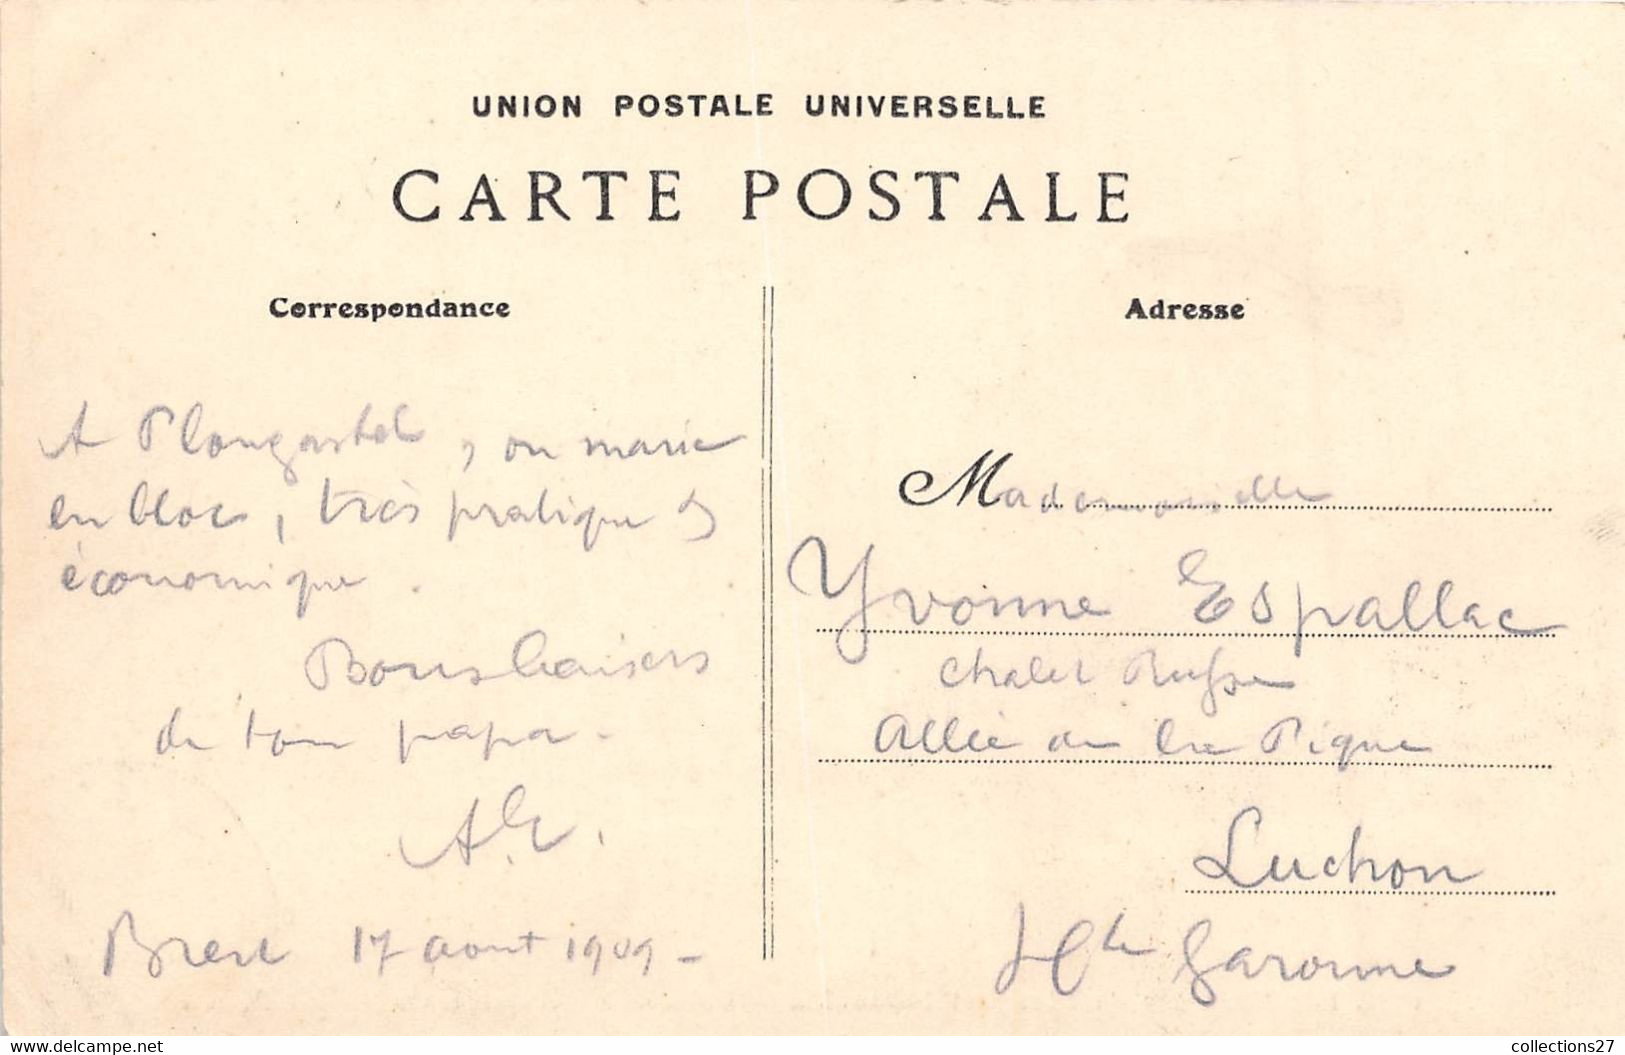 UNION POSTALE UNIVERSELLE
CARTE POSTALE
Correspondance
A Plougastel, on marie
en bloc, très pratique &
économique.
Bons baisers
de ton papa.
A.E.
Brest 17 aout 1909 -
Adresse
Mademoiselle
Yvonne Espallac
Chalet Russe
Allée de la Pique
Luchon
Hte Garonne
www.delcampe.net
collections27